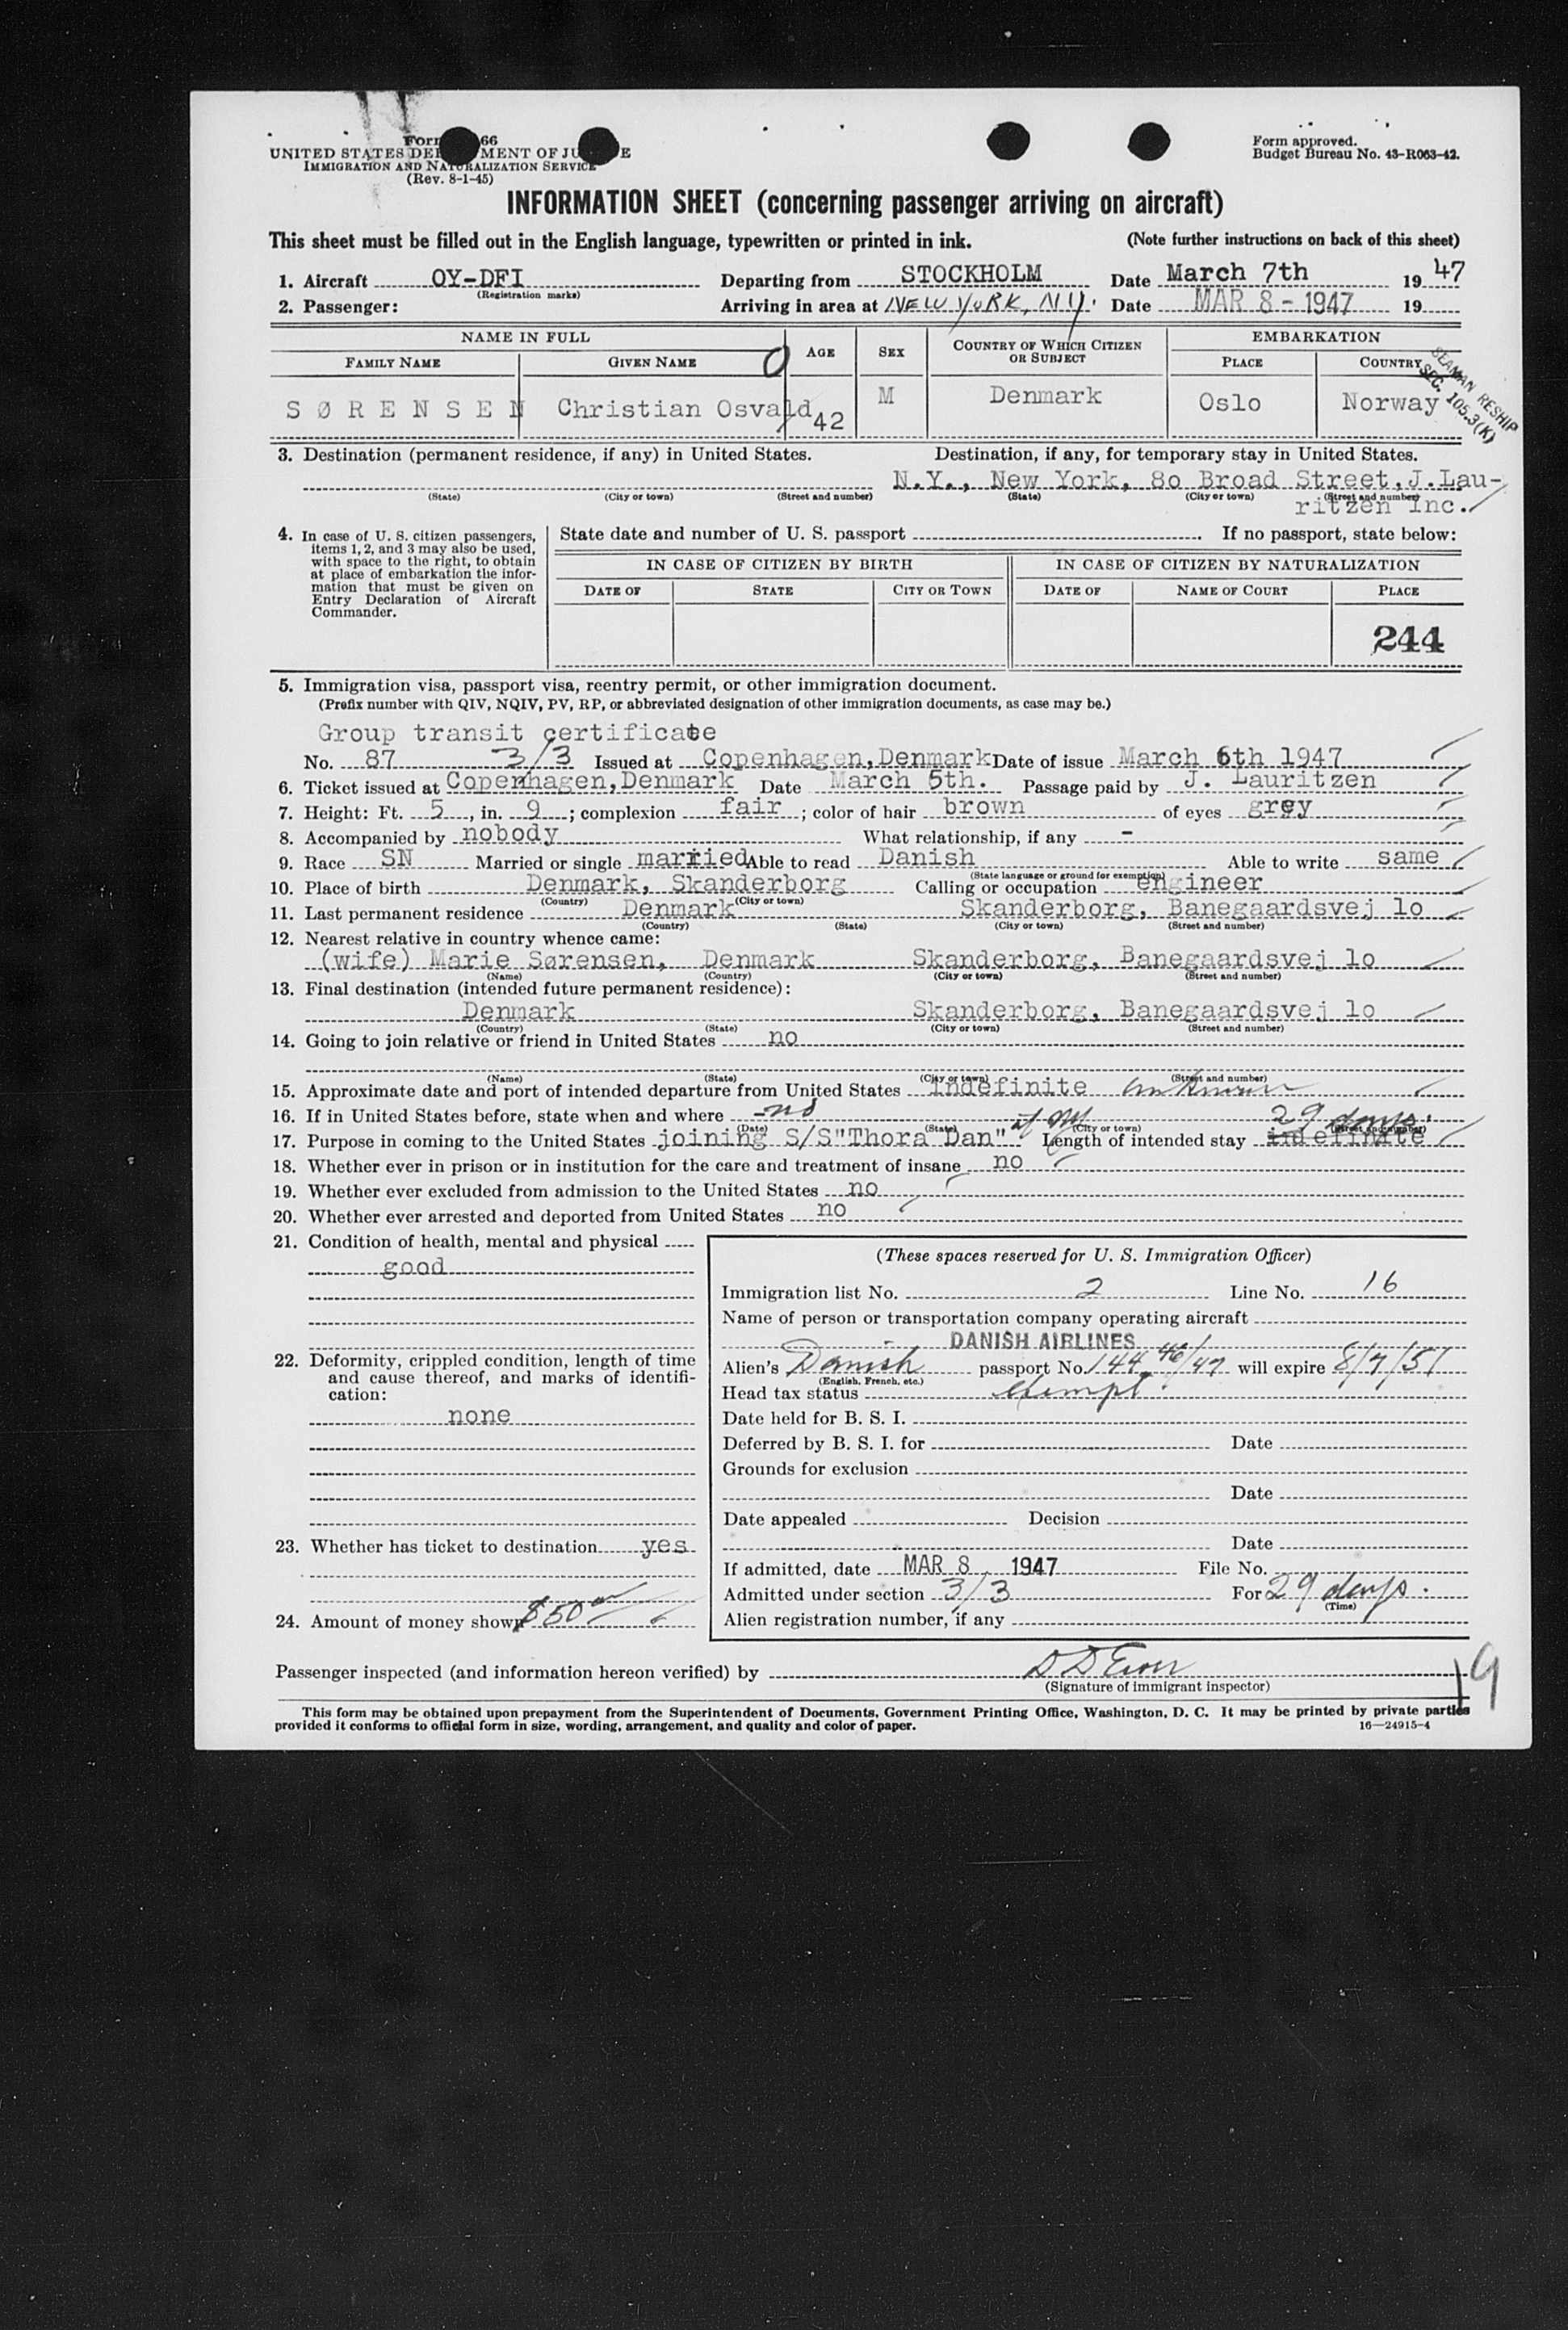 Form 66
UNITED STATES DEPARTMENT OF JUSTICE
IMMIGRATION AND NATURALIZATION SERVICE
(Rev. 8-1-45)
Form approved.
Budget Bureau No. 43-R063-42.
INFORMATION SHEET (concerning passenger arriving on aircraft)
This sheet must be filled out in the English language, typewritten or printed in ink. (Note further instructions on back of this sheet)
1. Aircraft OY-DFI Departing from STOCKHOLM Date March 7th 1947
(Registration marks)
2. Passenger: Arriving in area at NEW YORK, N.Y. Date MAR 8 - 1947 19
NAME IN FULL AGE SEX COUNTRY OF WHICH CITIZEN OR SUBJECT EMBARKATION
FAMILY NAME GIVEN NAME PLACE COUNTRY
SEAMAN RESHIP
SEC. 105.3(K)
SØRENSEN Christian Osvald 42 M Denmark Oslo Norway
3. Destination (permanent residence, if any) in United States. Destination, if any, for temporary stay in United States.
N.Y., New York, 8o Broad Street, J.Lau-
(State) (City or town) (Street and number) (State) (City or town) (Street and number)
ritzen Inc.
4. In case of U. S. citizen passengers, items 1, 2, and 3 may also be used, with space to the right, to obtain at place of embarkation the information that must be given on Entry Declaration of Aircraft Commander.
State date and number of U. S. passport If no passport, state below:
IN CASE OF CITIZEN BY BIRTH IN CASE OF CITIZEN BY NATURALIZATION
DATE OF STATE CITY OR TOWN DATE OF NAME OF COURT PLACE
244
5. Immigration visa, passport visa, reentry permit, or other immigration document.
(Prefix number with QIV, NQIV, PV, RP, or abbreviated designation of other immigration documents, as case may be.)
Group transit certificate
No. 87 3/3 Issued at Copenhagen, Denmark Date of issue March 6th 1947
6. Ticket issued at Copenhagen, Denmark Date March 5th. Passage paid by J. Lauritzen
7. Height: Ft. 5, in. 9; complexion fair; color of hair brown of eyes grey
8. Accompanied by nobody What relationship, if any -
9. Race SN Married or single married Able to read Danish Able to write same
(State language or ground for exemption)
10. Place of birth Denmark, Skanderborg Calling or occupation engineer
(Country) (City or town)
11. Last permanent residence Denmark Skanderborg, Banegaardsvej lo
(Country) (State) (City or town) (Street and number)
12. Nearest relative in country whence came:
(wife) Marie Sørensen, Denmark Skanderborg, Banegaardsvej lo
(Name) (Country) (City or town) (Street and number)
13. Final destination (intended future permanent residence):
Denmark Skanderborg, Banegaardsvej lo
(Country) (State) (City or town) (Street and number)
14. Going to join relative or friend in United States no
(Name) (State) (City or town) (Street and number)
15. Approximate date and port of intended departure from United States indefinite unknown
16. If in United States before, state when and where no
(Date) (State) (City or town) (Street and number)
17. Purpose in coming to the United States joining S/S"Thora Dan" at NY Length of intended stay indefinite 29 days.
18. Whether ever in prison or in institution for the care and treatment of insane no
19. Whether ever excluded from admission to the United States no
20. Whether ever arrested and deported from United States no
21. Condition of health, mental and physical
good
22. Deformity, crippled condition, length of time and cause thereof, and marks of identification:
none
23. Whether has ticket to destination yes
24. Amount of money shown $50
(These spaces reserved for U. S. Immigration Officer)
Immigration list No. 2 Line No. 16
Name of person or transportation company operating aircraft
DANISH AIRLINES
Alien's Danish passport No. 144 46/47 will expire 8/7/51
(English, French, etc.)
Head tax status exempt.
Date held for B. S. I.
Deferred by B. S. I. for Date
Grounds for exclusion
Date
Date appealed Decision
Date
If admitted, date MAR 8 1947 File No.
Admitted under section 3/3 For 29 days.
(Time)
Alien registration number, if any
Passenger inspected (and information hereon verified) by
(Signature of immigrant inspector)
19
This form may be obtained upon prepayment from the Superintendent of Documents, Government Printing Office, Washington, D. C. It may be printed by private parties
provided it conforms to official form in size, wording, arrangement, and quality and color of paper. 16—24915-4